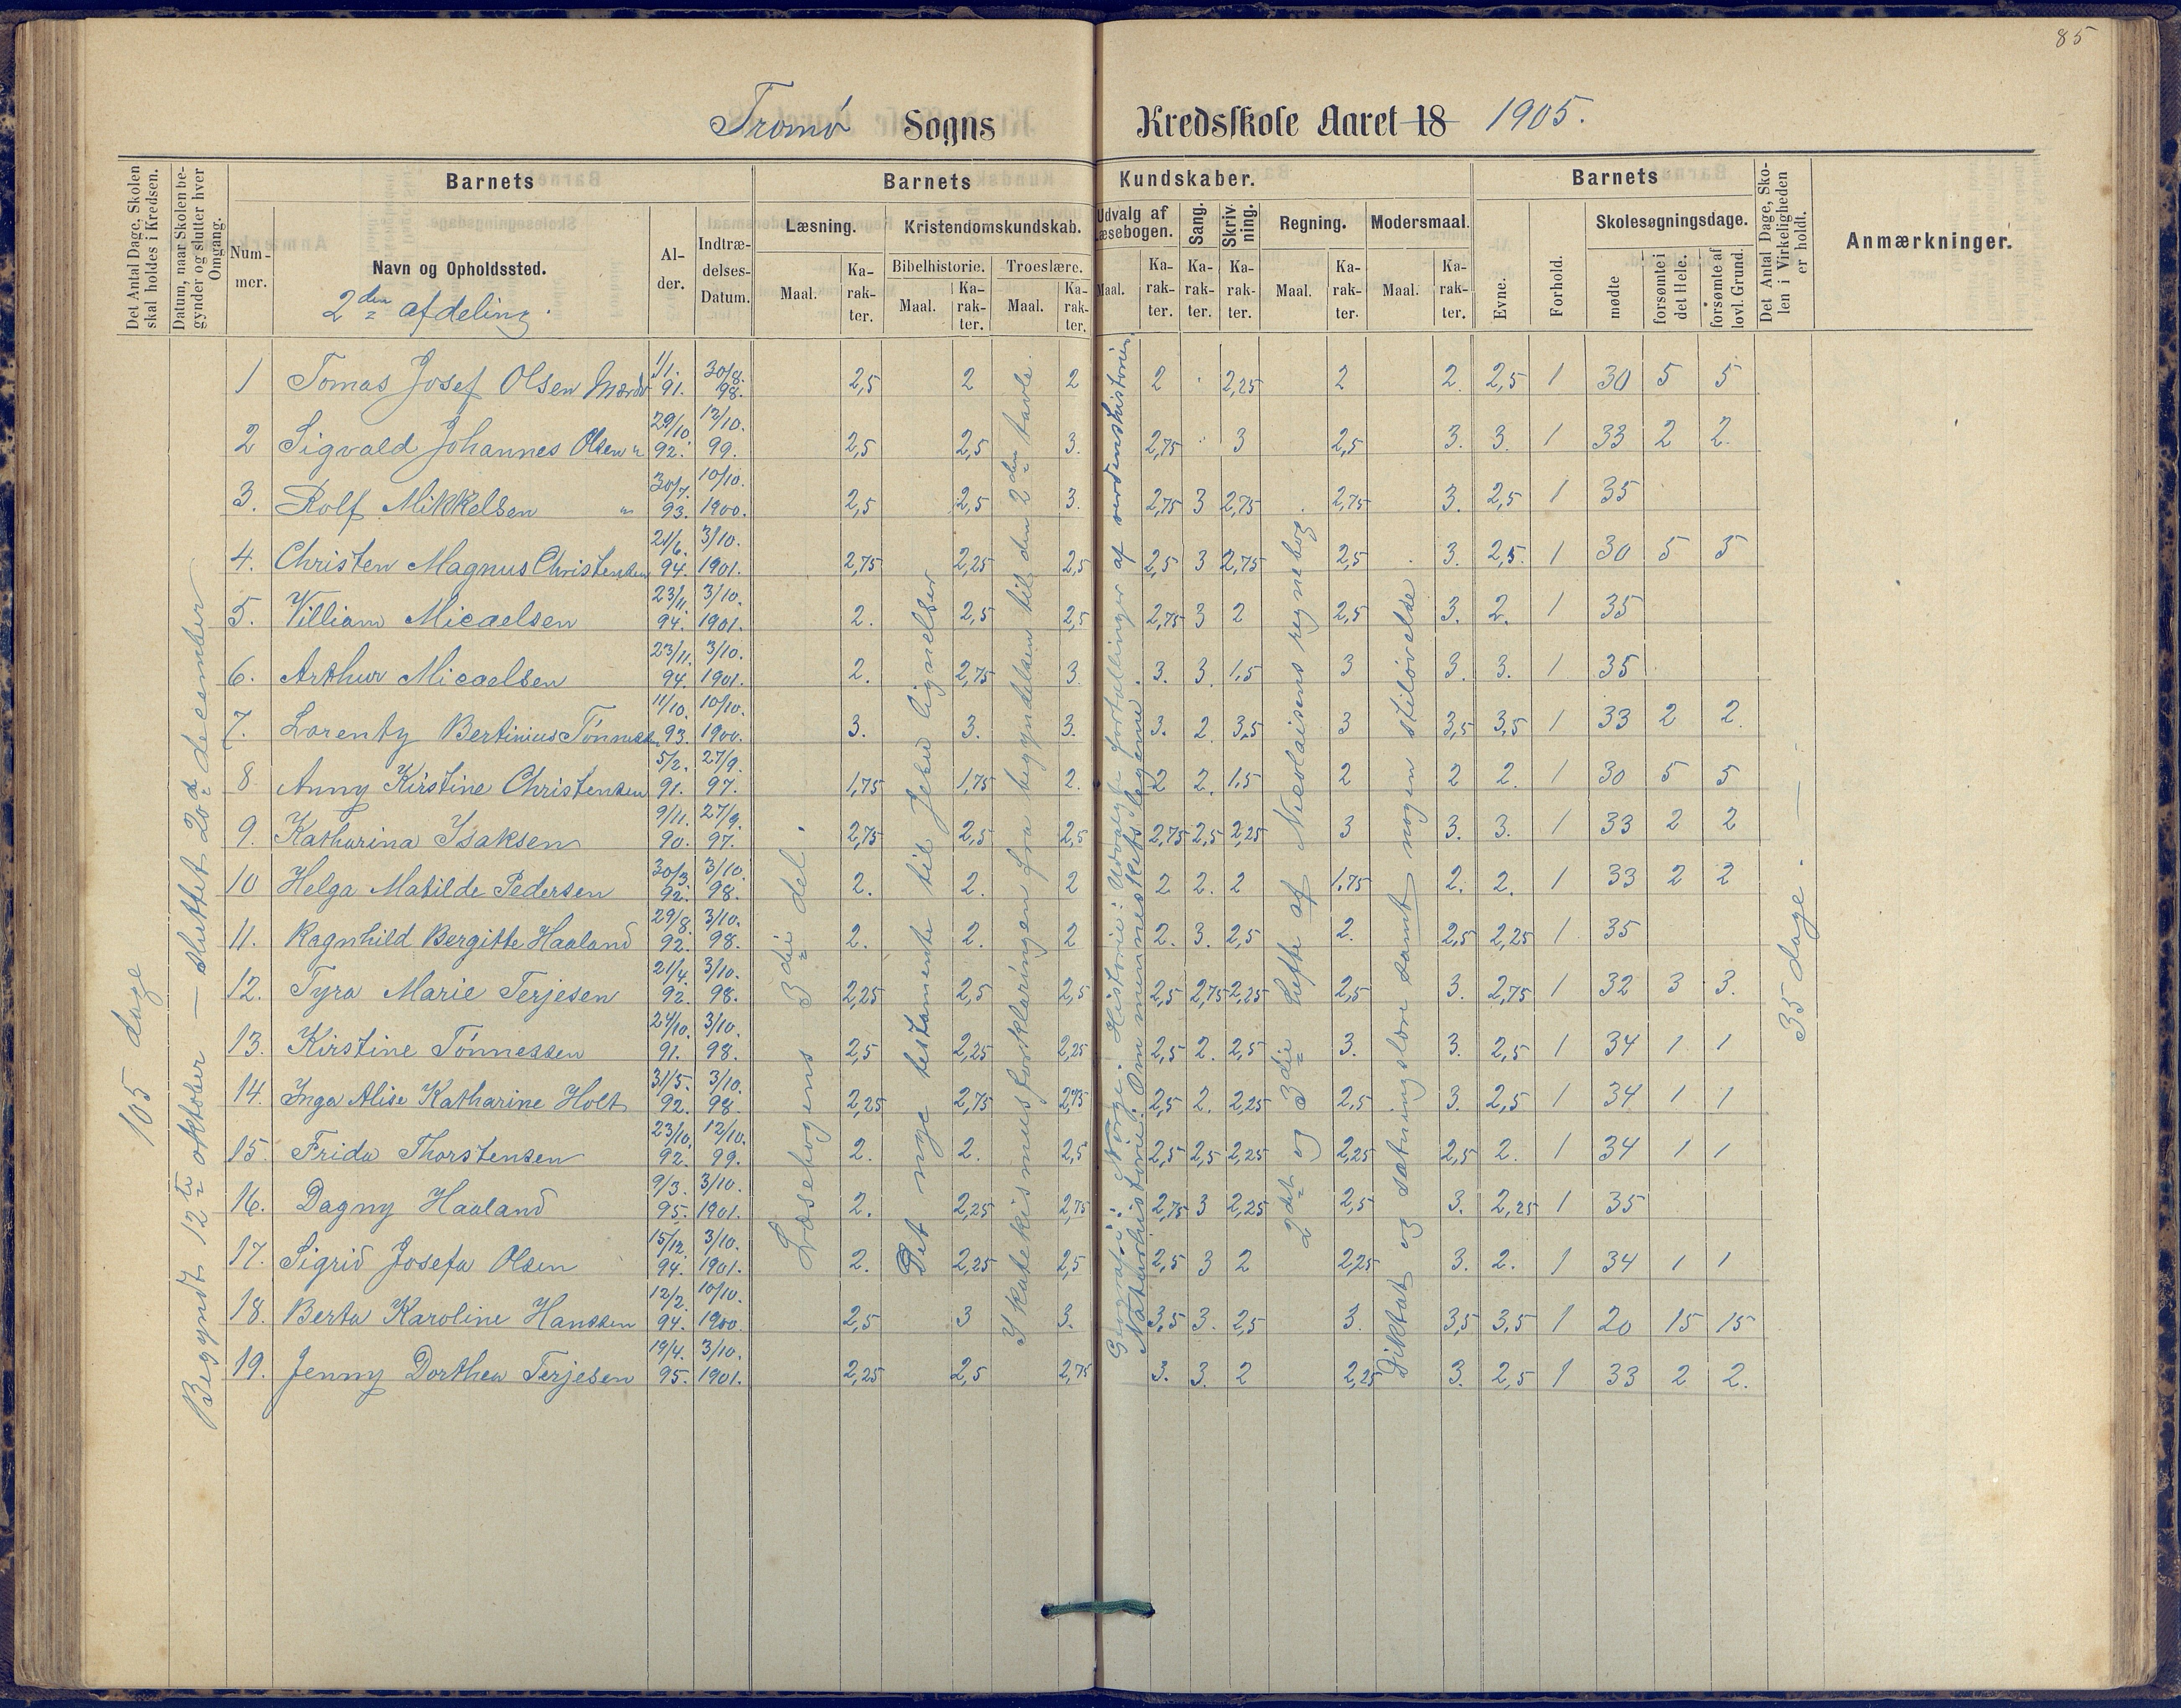 85
Tromø Sogns Kredsskole Aaret 18 1905.
Det Antal Dage, Skolen skal holdes i Kredsen.
Datum, naar Skolen begynder og slutter hver Omgang.
Barnets
Nummer.
Navn og Opholdssted.
2den afdeling.
Alder.
Indtrædelses-Datum.
Barnets Kundskaber.
Læsning.
Maal.
Karakter.
Kristendomskundskab.
Bibelhistorie.
Maal.
Karakter.
Troeslære.
Maal.
Karakter.
Udvalg af Læsebogen.
Maal.
Karakter.
Sang.
Karakter.
Skrivning.
Karakter.
Regning.
Maal.
Karakter.
Modersmaal.
Maal.
Karakter.
Barnets
Evne.
Forhold.
Skolesøgningsdage.
mødte
forsømte i det Hele.
forsømte af lovl. Grund.
Det Antal Dage, Skolen i Virkeligheden er holdt.
Anmærkninger.
105 dage
Begyndt 12te oktober — sluttet 20de december
1 Tomas Josef Olsen Mærdø 1/1. 91. 30/8. 98. 2,5 2 2 2 2,25 2 2. 2,5 1 30 5 5
2 Sigvald Johannes Olsen " 29/10. 92. 12/10. 99. 2,5 2,5 3. 2,75 3 2,5 3. 3. 1 33 2 2.
3. Rolf Mikkelsen " 30/7. 93. 10/10. 1900. 2,5 2,5 3. 2,75 3 2,75 2,75 3. 2,5 1 35
4. Christen Magnus Christensen 21/6. 94. 3/10. 1901. 2,75 2,25 2,5 2,5 3 2,75 2,5 3. 2,5. 1 30 5 5
5. Villiam Micaelsen 23/11. 94. 3/10. 1901. 2. 2,5 2,5 2,75 3 2 2,5 3. 2. 1 35
6. Arthur Micaelsen 23/11. 94. 3/10. 1901. 2. 2,75 3. 3. 3. 1,5 3 3. 3. 1 35
7. Lorenty Bertinius Tønnessen 11/10. 93. 10/10. 1900. 3. 3. 3. 3. 2 3,5 3 3,5 3,5 1 33 2 2.
8 Anny Kirstine Christensen 5/2. 91. 27/9. 97. 1,75 1,75 2. 2 2. 1,5 2 2 2. 1 30 5 5
9. Katharina Isaksen 9/11. 90. 27/9. 97. 2,75 2,5 2,5 2,75 2,5 2,25 3 3. 3. 1 33 2 2
10 Helga Matilde Pedersen 30/3. 92. 3/10. 98. 2. 2. 2 2 2. 2 1,75 2. 2. 1 33 2 2
11. Ragnhild Bergitte Haaland 29/8. 92. 3/10. 98. 2. 2. 2 2. 3. 2,5 2. 2,5 2,25 1 35
12. Tyra Marie Terjesen 21/4. 92. 3/10. 98. 2,25 2,5 2,5 2,5 2,75 2,25 2,5 3. 2,75 1 32 3 3.
13. Kirstine Tønnessen 24/10. 91. 3/10. 98. 2,5 2,25 2,25 2,5 2. 2,5 3. 3. 2,5 1 34 1 1
14. Inga Alise Katharine Holt 31/5. 92. 3/10. 98. 2,25 2,75 2,75 2,5 2. 2,25 2,5 3. 2,5 1 34 1 1
15. Frida Thorstensen 23/10. 92. 12/10. 99. 2. 2. 2,5 2,5 2,5 2,25 2,25 2,5 2. 1 34 1 1
16. Dagny Haaland 9/3. 95. 3/10. 1901. 2. 2,25 2,75 2,75 3 2,25 2,5 3. 2,25 1 35
17. Sigrid Josefa Olsen 15/12. 94. 3/10. 1901. 2. 2,25 2,5 2,5 3 2 2,25 3. 2. 1 34 1 1
18. Berta Karoline Hanssen 12/2. 94. 10/10. 1900. 2,5 3 3. 3,5 3. 2,5 3. 3,5 3,5 1 20 15 15
19. Jenny Dorthea Terjesen 19/4. 95. 3/10. 1901. 2,25 2,5 2,75 3. 3. 2 2,25 3. 2,5 1 33 2 2.
Læsebogens 3die del.
Det nye testamente til Jesu lignelser
I katekismusforklaringen fra begyndelsen til den 2den tavle.
Geografi: Norge. Historie: Udvalgte fortællinger af verdenshistorien
Naturhistorie: Om menneskets legeme.
2det og 3die hefte af Nicolaisens regnebog
Diktat og sætningslære samt nogen stiløvelde
35 dage.